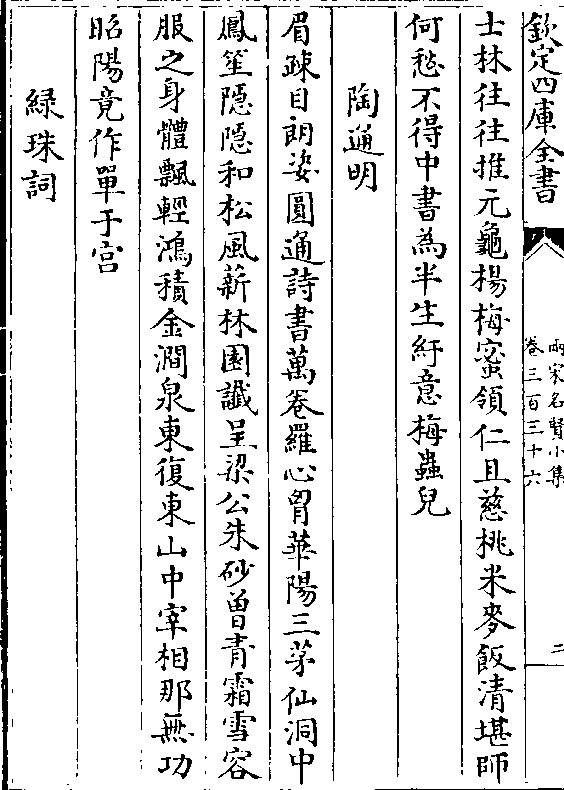 欽定四庫全書
兩宋名賢小集
卷三百三十六
二
士林往往推元龜楊梅蜜領仁且慈桃米麥飯清堪師
何愁不得中書為半生紆意梅蟲兒
陶通明
眉疎目朗姿圓通詩書萬卷羅心胷華陽三茅仙洞中
鳳笙隱隱和松風蘄林園讖呈梁公朱砂曾青霜雪容
服之身體飄輕鴻積金澗泉東復東山中宰相那無功
昭陽竟作單于宫
緑珠詞